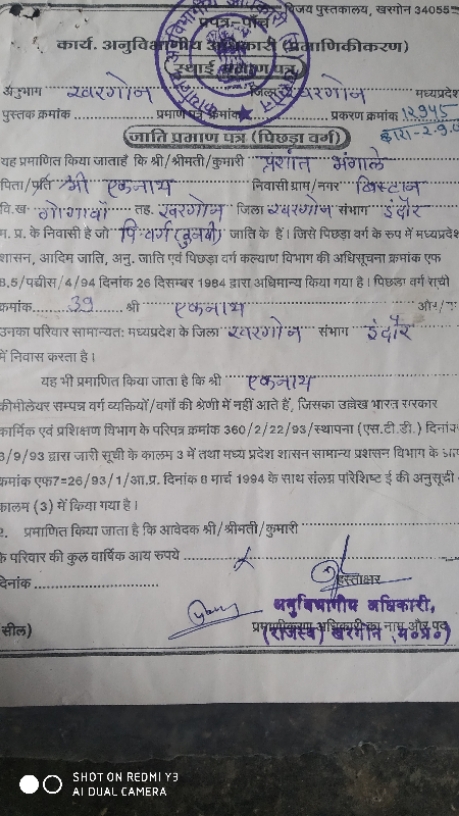 विजय पुस्तकालय, खरगोन 34055
प्रपत्र-पाँच
कार्य. अनुविभागीय अधिकारी (प्रमाणिकीकरण)
स्थाई प्रमाण पत्र
अनुभाग खरगोन जिला खरगोन मध्यप्रदेश
पुस्तक क्रमांक प्रमाण पत्र क्रमांक प्रकरण क्रमांक 12945
जाति प्रमाण पत्र (पिछड़ा वर्ग)
यह प्रमाणित किया जाताहै कि श्री/श्रीमती/कुमारी प्रशांत भंगाले
पिता/पति श्री एकनाथ निवासी ग्राम/नगर बिस्टान
वि.ख. गोगावाँ तह. खरगोन जिला खरगोन संभाग इंदौर
म. प्र. के निवासी है जो पि. वर्ग (कुनबी) जाति के हैं। जिसे पिछड़ा वर्ग के रूप में मध्यप्रदेश
शासन, आदिम जाति, अनु. जाति एवं पिछड़ा वर्ग कल्याण विभाग की अधिसूचना क्रमांक एफ
8,5/पच्चीस/4/94 दिनांक 26 दिसम्बर 1984 द्वारा अधिमान्य किया गया है। पिछला वर्ग सूची
क्रमांक 39 श्री एकनाथ और/
उनका परिवार सामान्यत: मध्यप्रदेश के जिला खरगोन संभाग इंदौर
में निवास करता है।
यह भी प्रमाणित किया जाता है कि श्री एकनाथ
कीमीलेयर सम्पन्न वर्ग व्यक्तियों/वर्गों की श्रेणी में नहीं आते हैं, जिसका उल्लेख भारत सरकार
कार्मिक एवं प्रशिक्षण विभाग के परिपत्र क्रमांक 360/2/22/93/स्थापना (एस.टी.डी.) दिनांक
8/9/93 द्वारा जारी सूची के कालम 3 में तथा मध्य प्रदेश शासन सामान्य प्रशासन विभाग के
क्रमांक एफ7=26/93/1/आ.प्र. दिनांक 8 मार्च 1994 के साथ संलग्न परिशिष्ट ई की अनुसूची
कालम (3) में किया गया है।
2. प्रमाणित किया जाता है कि आवेदक श्री/श्रीमती/कुमारी
के परिवार की कुल वार्षिक आय रुपये
दिनांक हस्ताक्षर
अनुविभागीय अधिकारी,
सील) (राजस्व) खरगोन (म०प्र०)
SHOT ON REDMI Y3
AI DUAL CAMERA